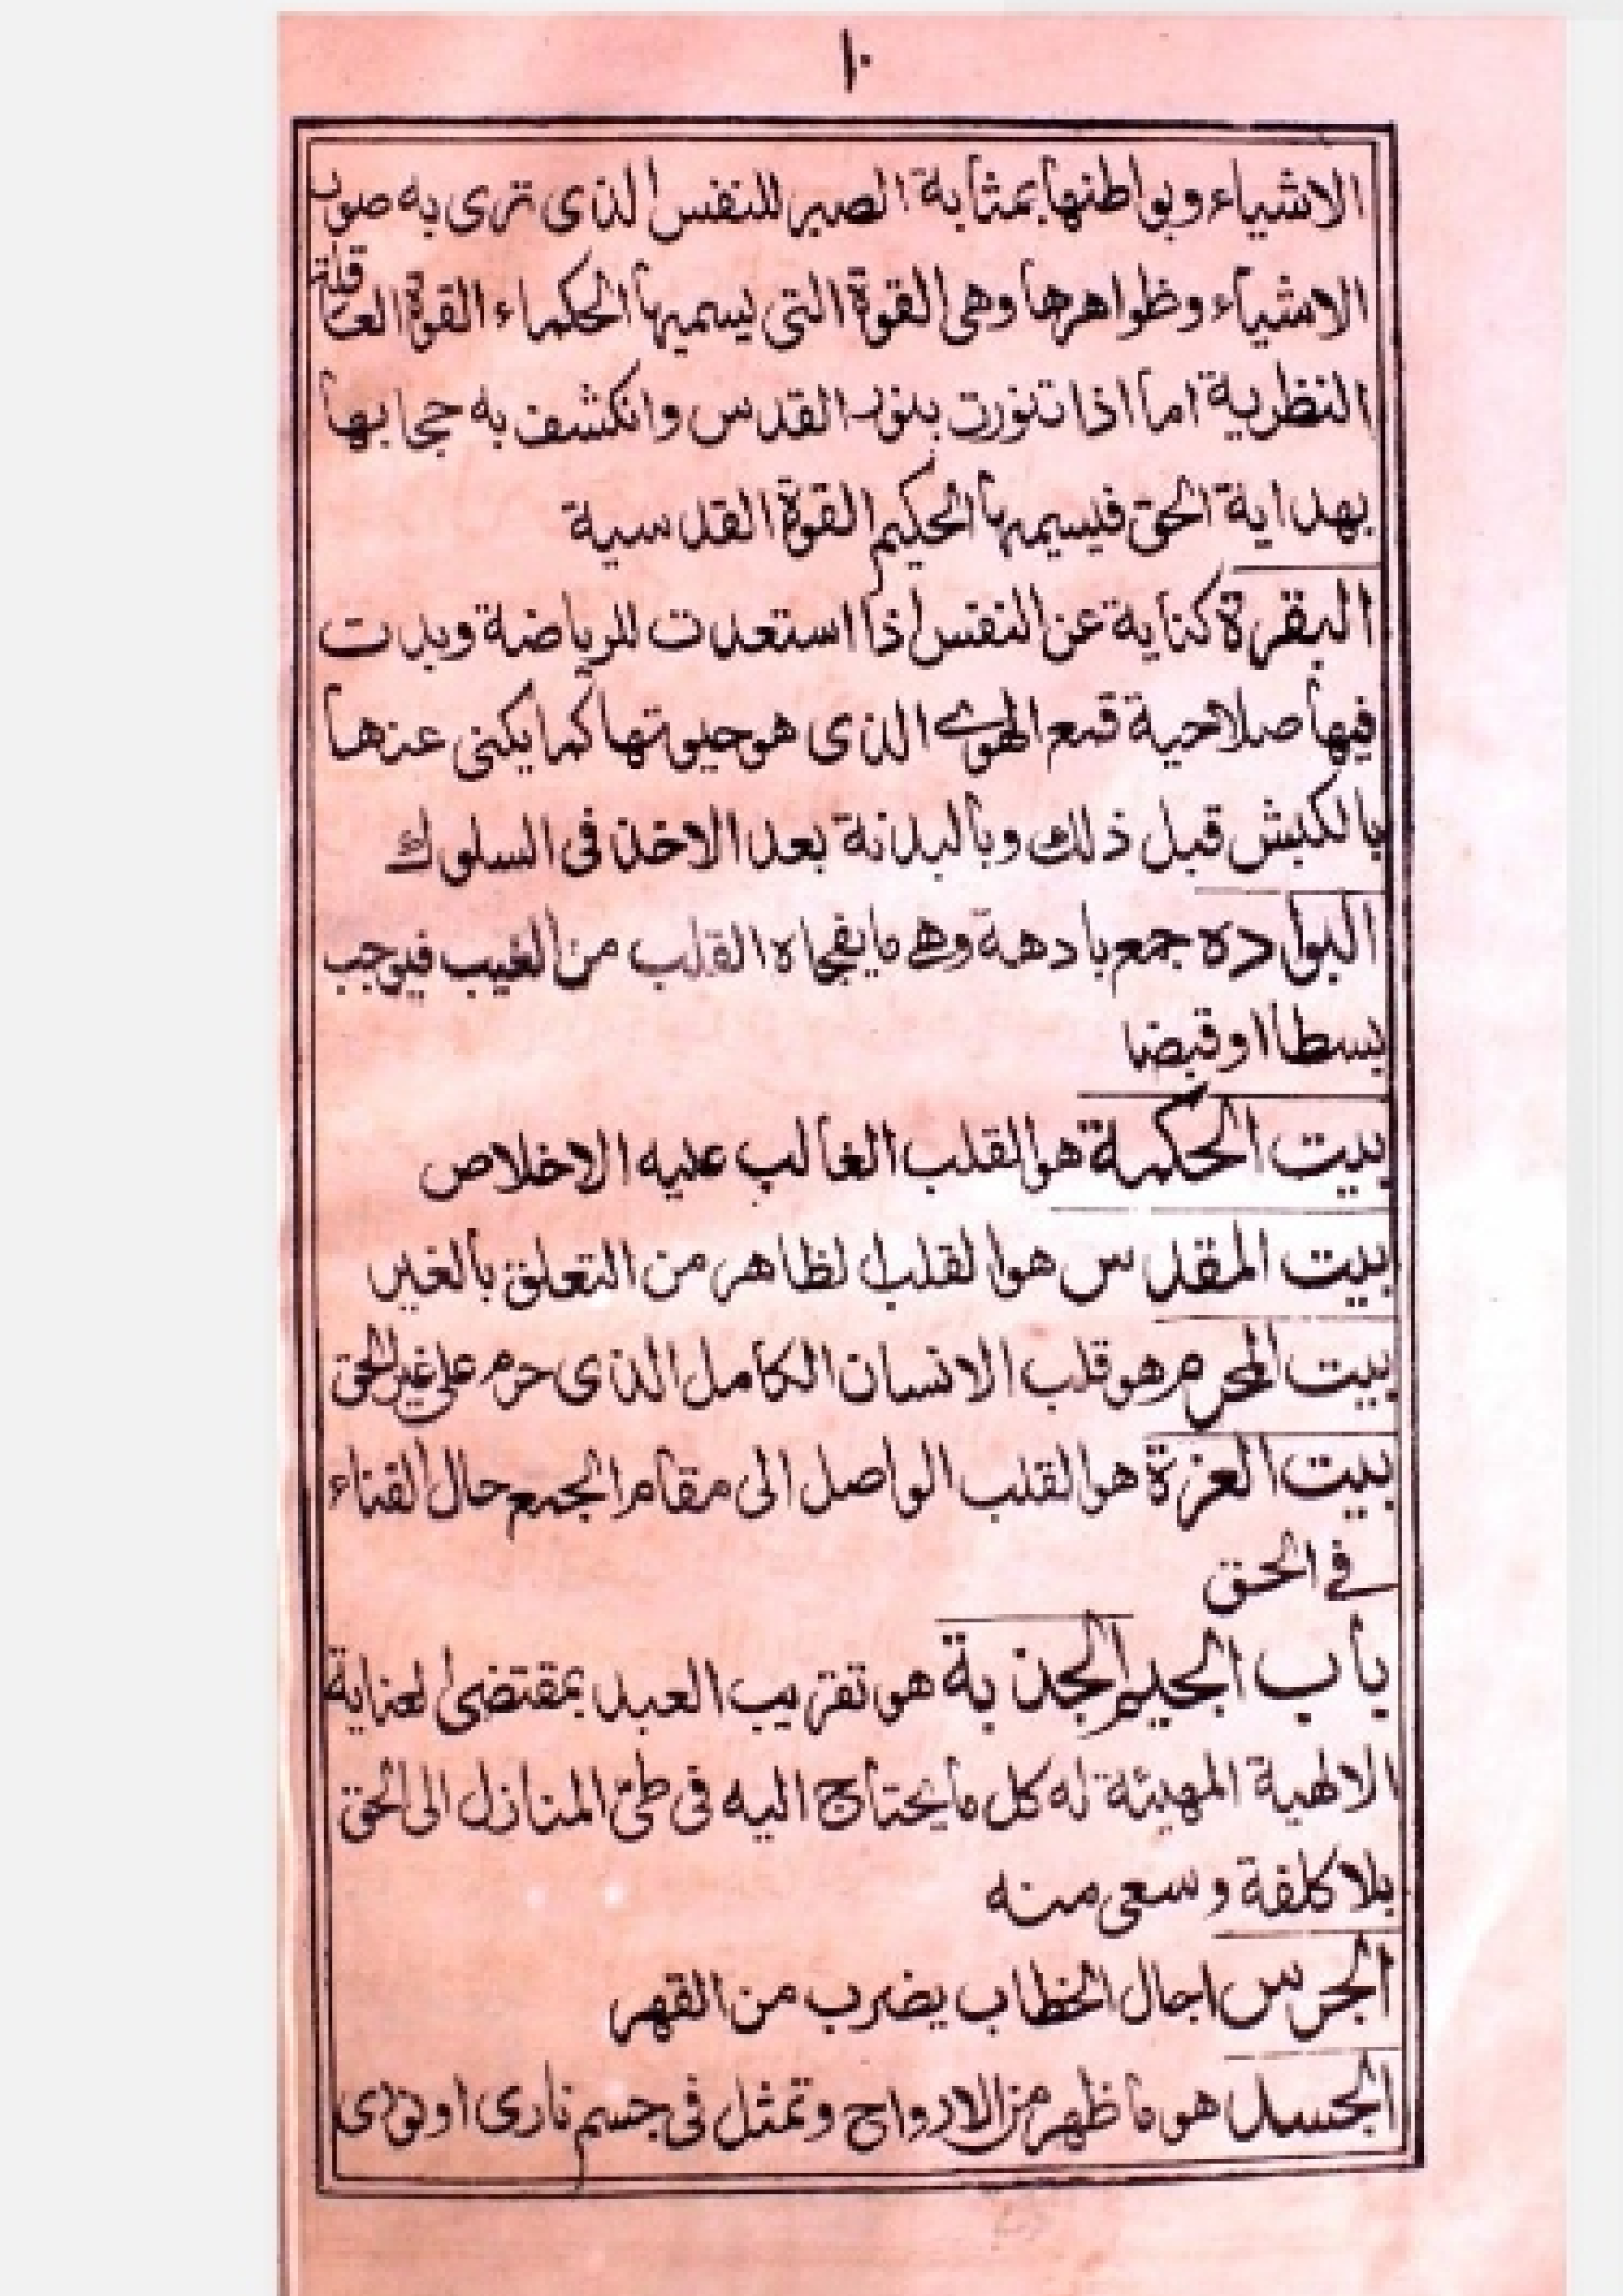 ١٠
الاشياء وبواطنها بمثابة الصبر للنفس الذى ترى به صور
الاشياء وظواهرها وهى القوة التى يسميها الحكماء القوة العاقلة
النظرية اما اذا تنورت بنور القدس وانكشف به حجابها
بهداية الحق فيسميها الحكيم القوة القدسية
البقرة كناية عن النفس اذا استعدت للرياضة وبدت
فيها صلاحية قمع الهوى الذى هو حيوتها كما يكنى عنها
بالكبش قبل ذلك وبالبدنة بعد الاخذ فى السلوك
البواده جمع بادهة وهى ما يفجاه القلب من الغيب فيوجب
بسطا او قبضا
بيت الحكمة هو القلب الغالب عليه الاخلاص
بيت المقدس هو القلب الظاهر من التعلق بالغير
بيت المحرم هو قلب الانسان الكامل الذى حرم على غير الحق
بيت العزة هو القلب الواصل الى مقام الجمع حال الفناء
فى الحق
باب الجيم الجذبة هو تقريب العبد بمقتضى العناية
الالهية المهيئة له كل ما يحتاج اليه فى طىّ المنازل الى الحق
بلا كلفة وسعى منه
الجرس اجمال الخطاب يضرب من القهر
الجسد هو ما ظهر من الارواح وتمثل فى جسم نارى او نورى